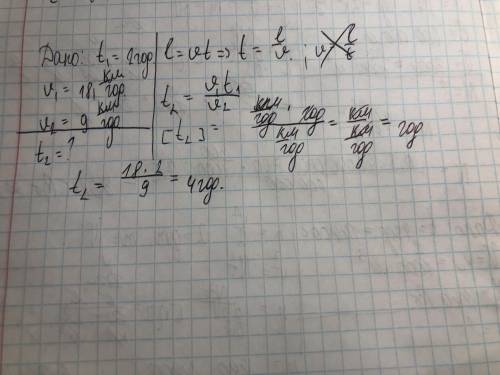 Дано: t₁ = 2 год
v₁ = 18 км/год
v₂ = 9 км/год
t₂ = ?
l = vt => t = l/v ;
t₂ = v₁t₁/v₂
[t₂] = (км/год · год)/(км/год) = км/(км/год) = год
t₂ = 18·2/9 = 4 год.